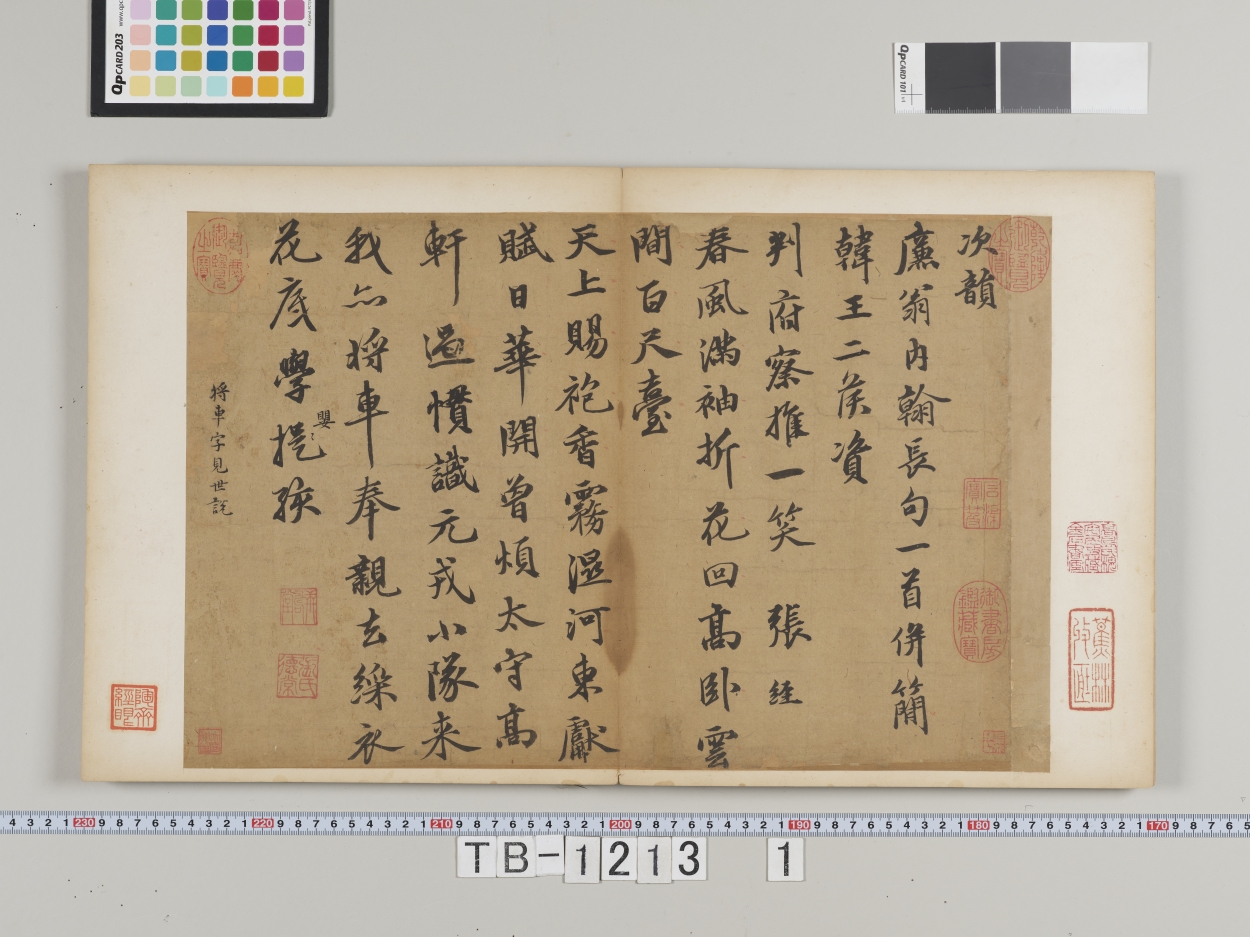 次韻
廉翁內翰長句一首併簡
韓王二侯資
判府察推一笑 張經
春風滿袖折花回高卧雲
間百尺臺
天上賜袍香霧濕河東獻
賦日華開曾煩太守高
軒過慣識元戎小隊来
我亦將車奉親去綵衣
花底學提孩
嬰
將車字見世說
御書房鑑藏寶
QPCARD 203
QPCARD 101
TB-1213 1
4 3 2 1 230 9 8 7 6 5 4 3 2 1 220 9 8 7 6 5 4 3 2 1 210 9 8 7 6 5 4 3 2 1 200 9 8 7 6 5 4 3 2 1 190 9 8 7 6 5 4 3 2 1 180 9 8 7 6 5 4 3 2 1 170 9 8 7 6 5